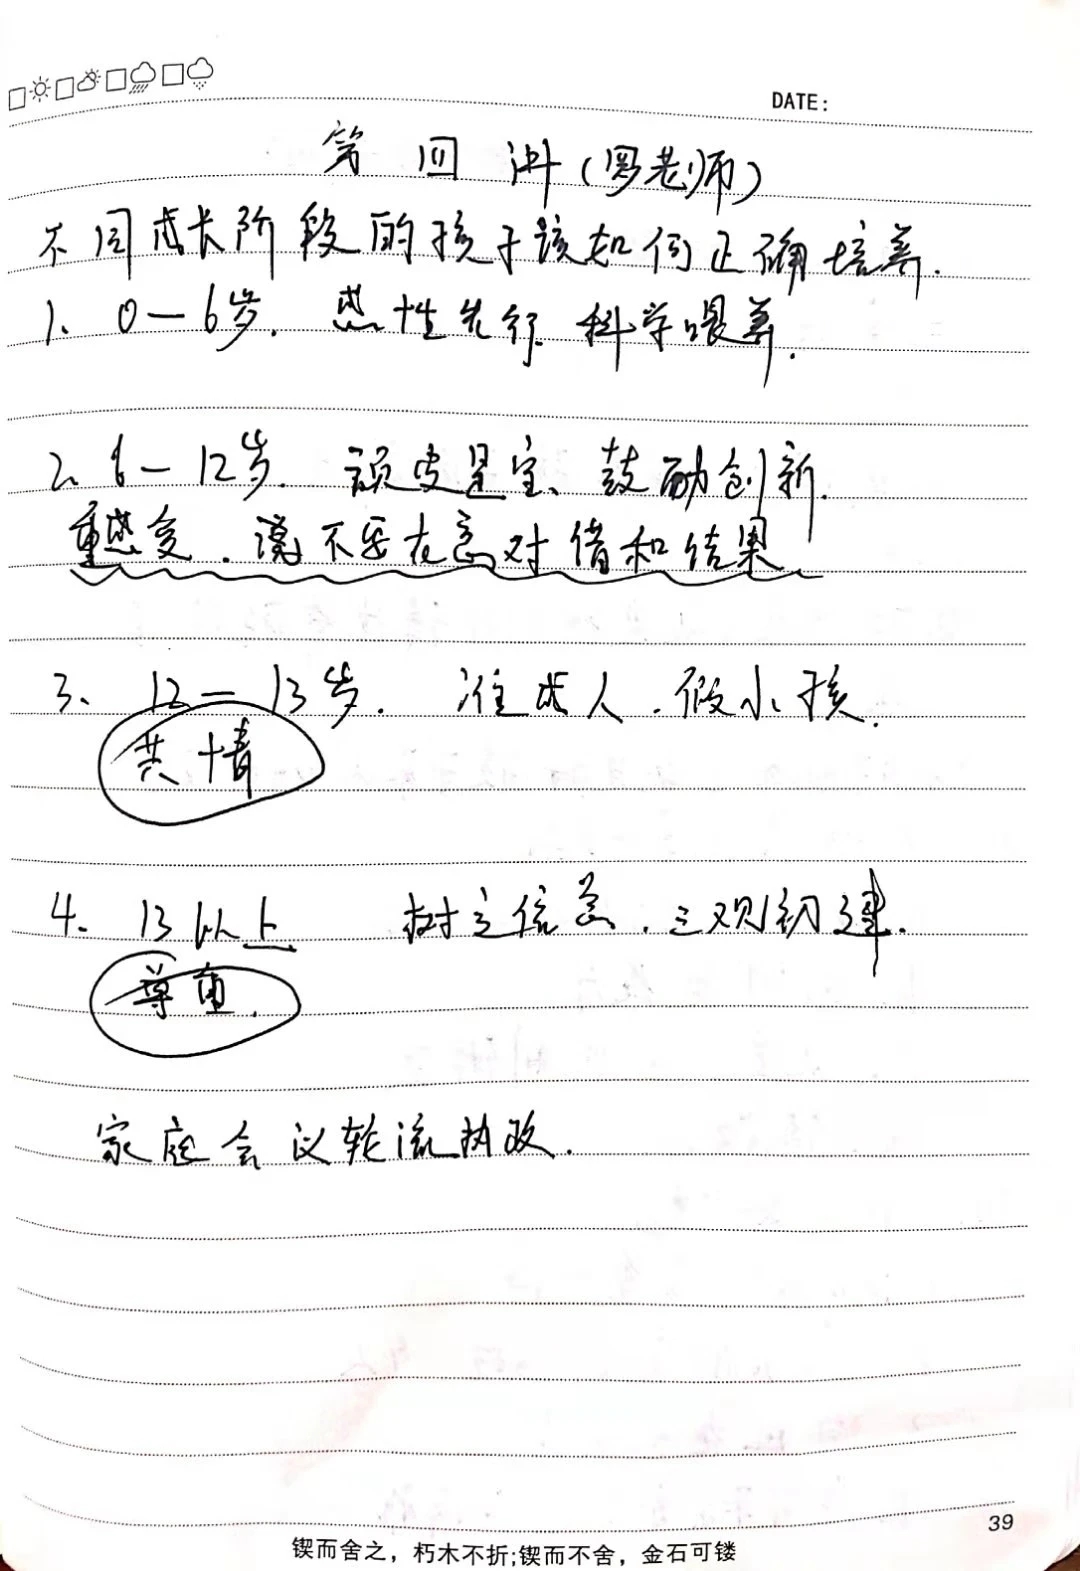 DATE:
第四讲(罗老师)
不同成长阶段的孩子该如何正确培养.
1、0—6岁. 感性先行 科学喂养.
2、6—12岁. 顽皮是宝、鼓励创新.
重感受. 不要在意对错和结果
3、12—13岁. 准成人.假小孩.
共情
4、13以上 树立信念.三观初建.
尊重.
家庭会议轮流执政.
39
锲而舍之，朽木不折;锲而不舍，金石可镂